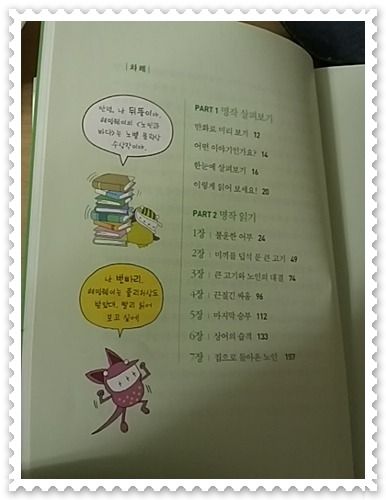 | 차례 |
안녕, 나 뒤뚱이야.
헤밍웨이의 <노인과
바다>는 노벨 문학상
수상작이야.
PART 1 명작 살펴보기
만화로 미리 보기 12
어떤 이야기인가요? 14
한눈에 살펴보기 16
이렇게 읽어 보세요! 20
PART 2 명작 읽기
1장 | 불운한 어부 24
2장 | 미끼를 덥석 문 큰 고기 49
3장 | 큰 고기와 노인의 대결 74
4장 | 끈질긴 싸움 96
5장 | 마지막 승부 112
6장 | 상어의 습격 133
7장 | 집으로 돌아온 노인 157
나
헤밍웨이는 퓰리처상도
받았대. 빨리 읽어
보고 싶어!